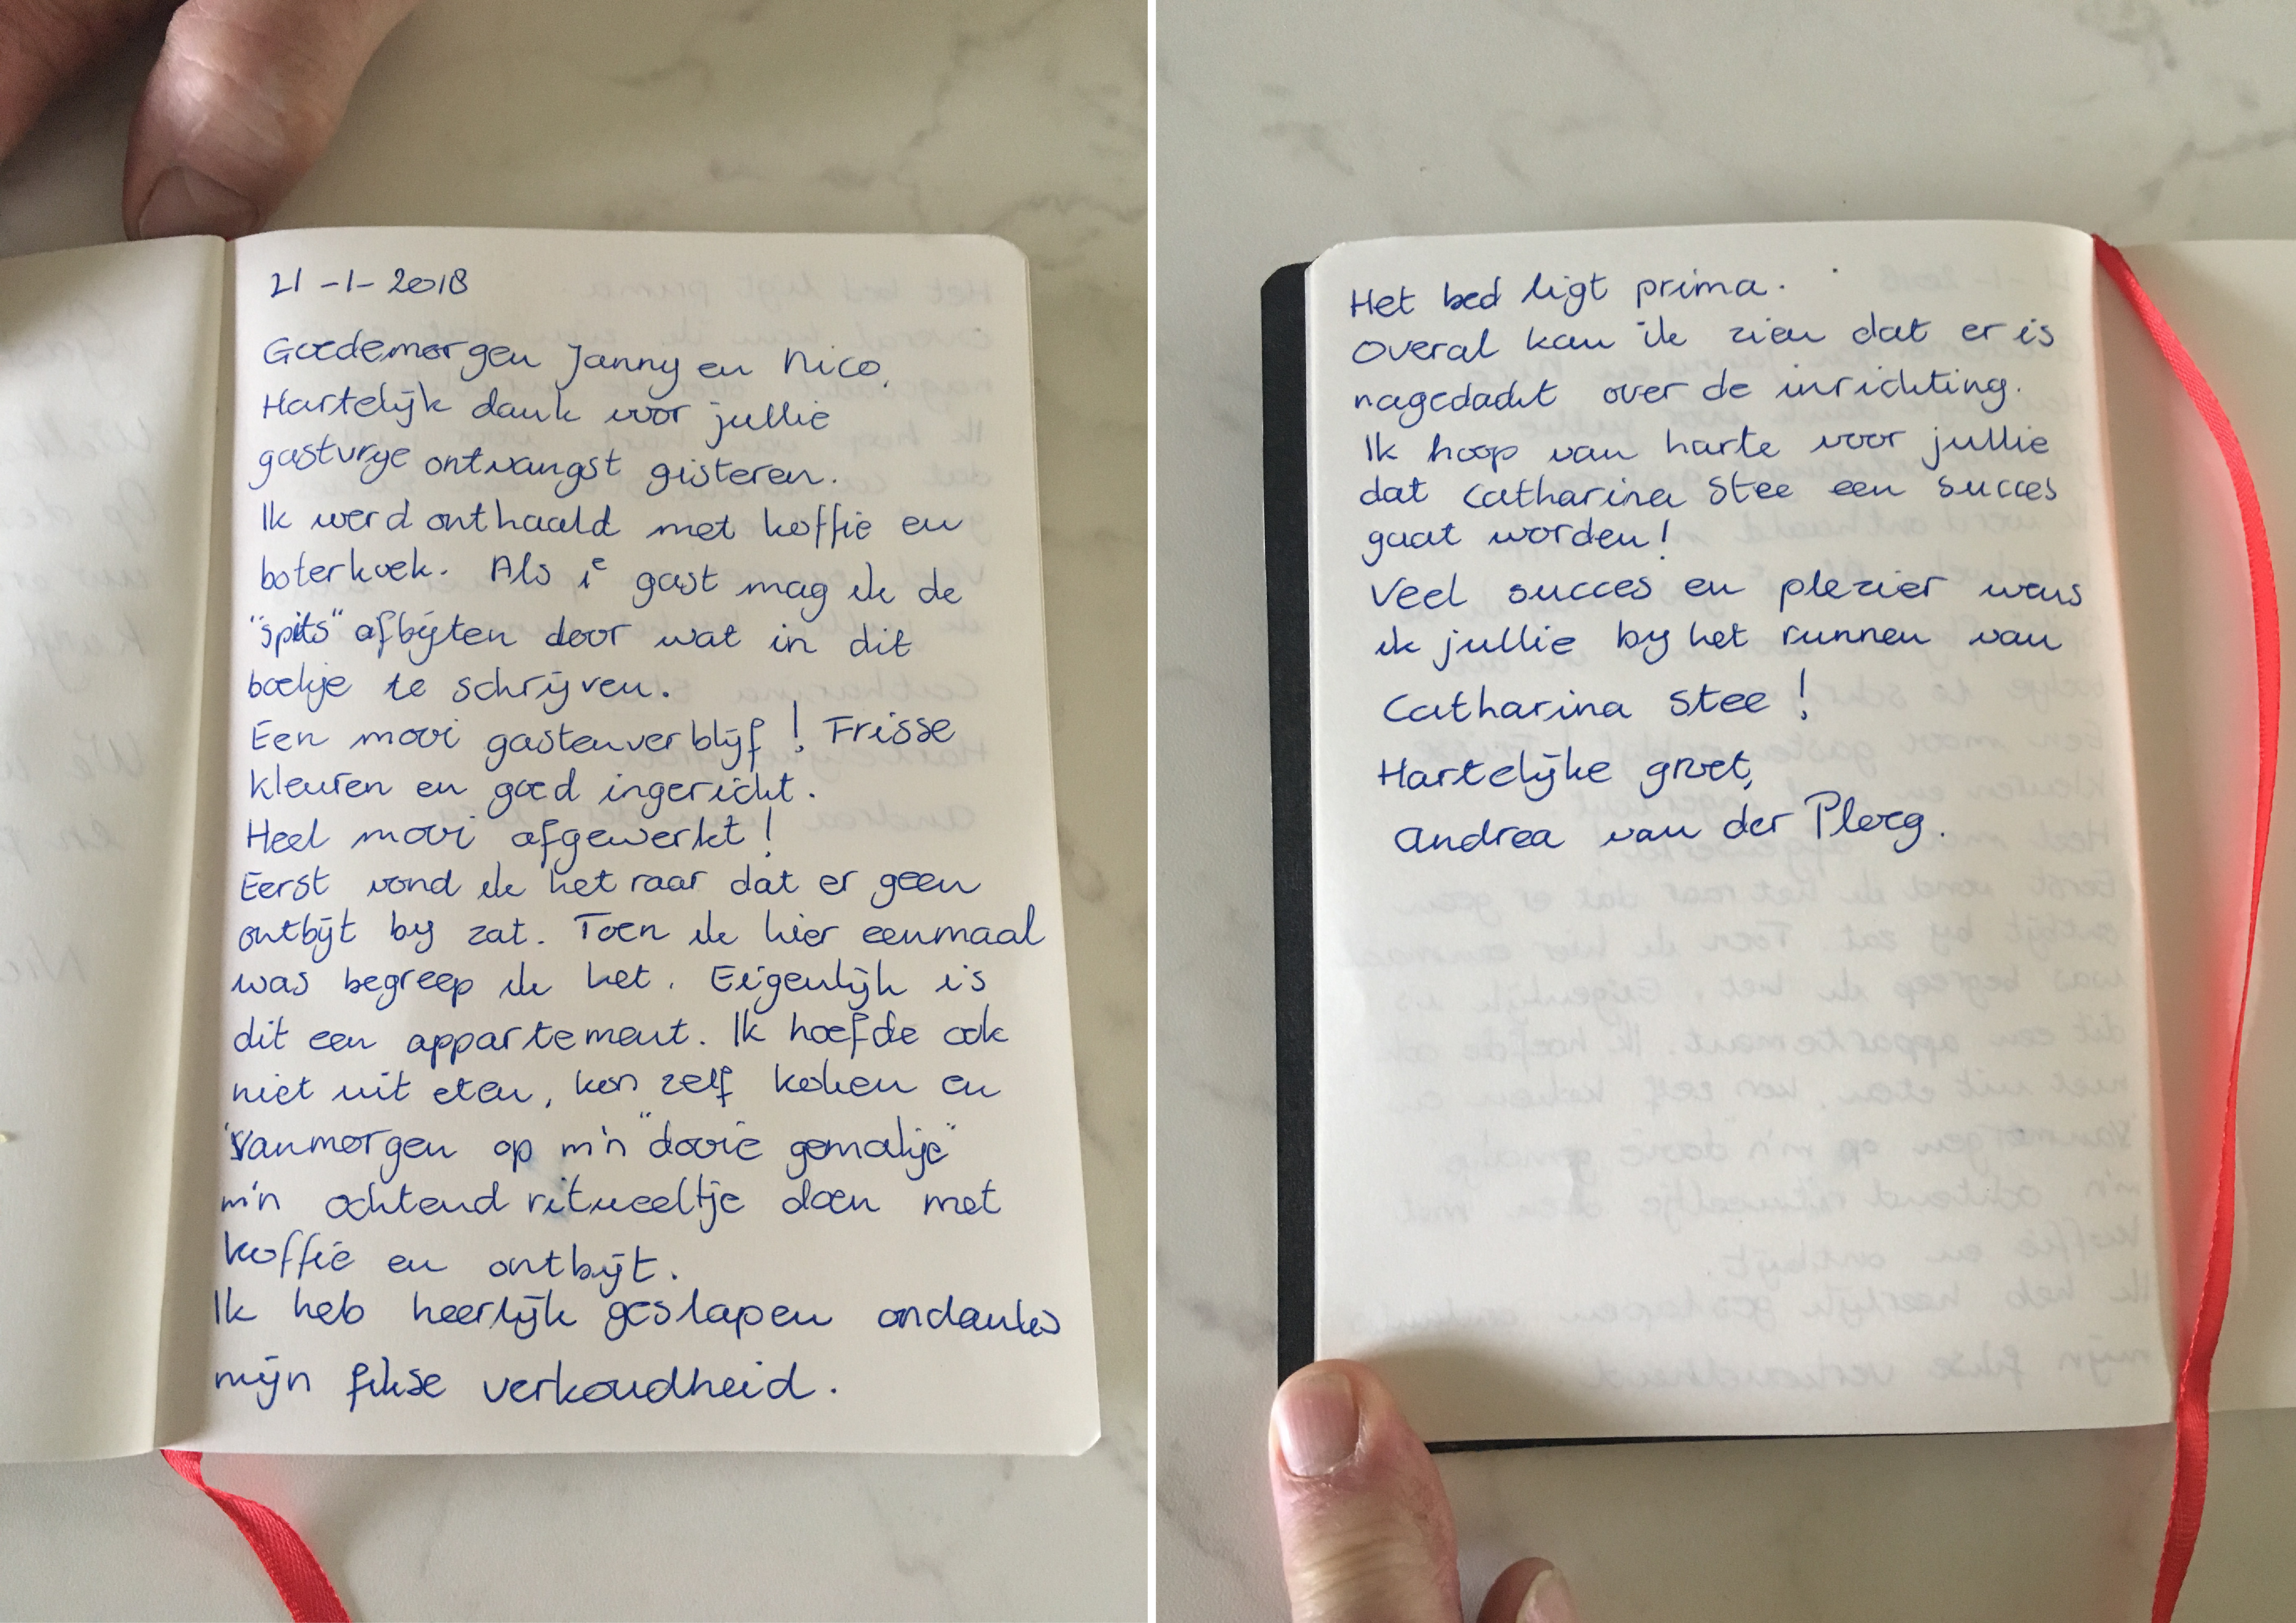 21-1-2018
Goedemorgen Janny en Nico,
Hartelijk dank voor jullie
gastvrije ontvangst gisteren.
Ik werd onthaald met koffie en
boterkoek. Als 1e gast mag ik de
"spits" afbijten door wat in dit
boekje te schrijven.
Een mooi gastenverblijf! Frisse
kleuren en goed ingericht.
Heel mooi afgewerkt!
Eerst vond ik het raar dat er geen
ontbijt bij zat. Toen ik hier eenmaal
was begreep ik het. Eigenlijk is
dit een appartement. Ik hoefde ook
niet uit eten, kon zelf koken en
vanmorgen op m'n "dooie gemakje"
m'n ochtend ritueeltje doen met
koffie en ontbijt.
Ik heb heerlijk geslapen ondanks
mijn fikse verkoudheid.
Het bed ligt prima.
Overal kan ik zien dat er is
nagedacht over de inrichting.
Ik hoop van harte voor jullie
dat Catharina Stee een succes
gaat worden!
Veel succes en plezier wens
ik jullie bij het runnen van
Catharina Stee!
Hartelijke groet,
Andrea van der Ploeg.